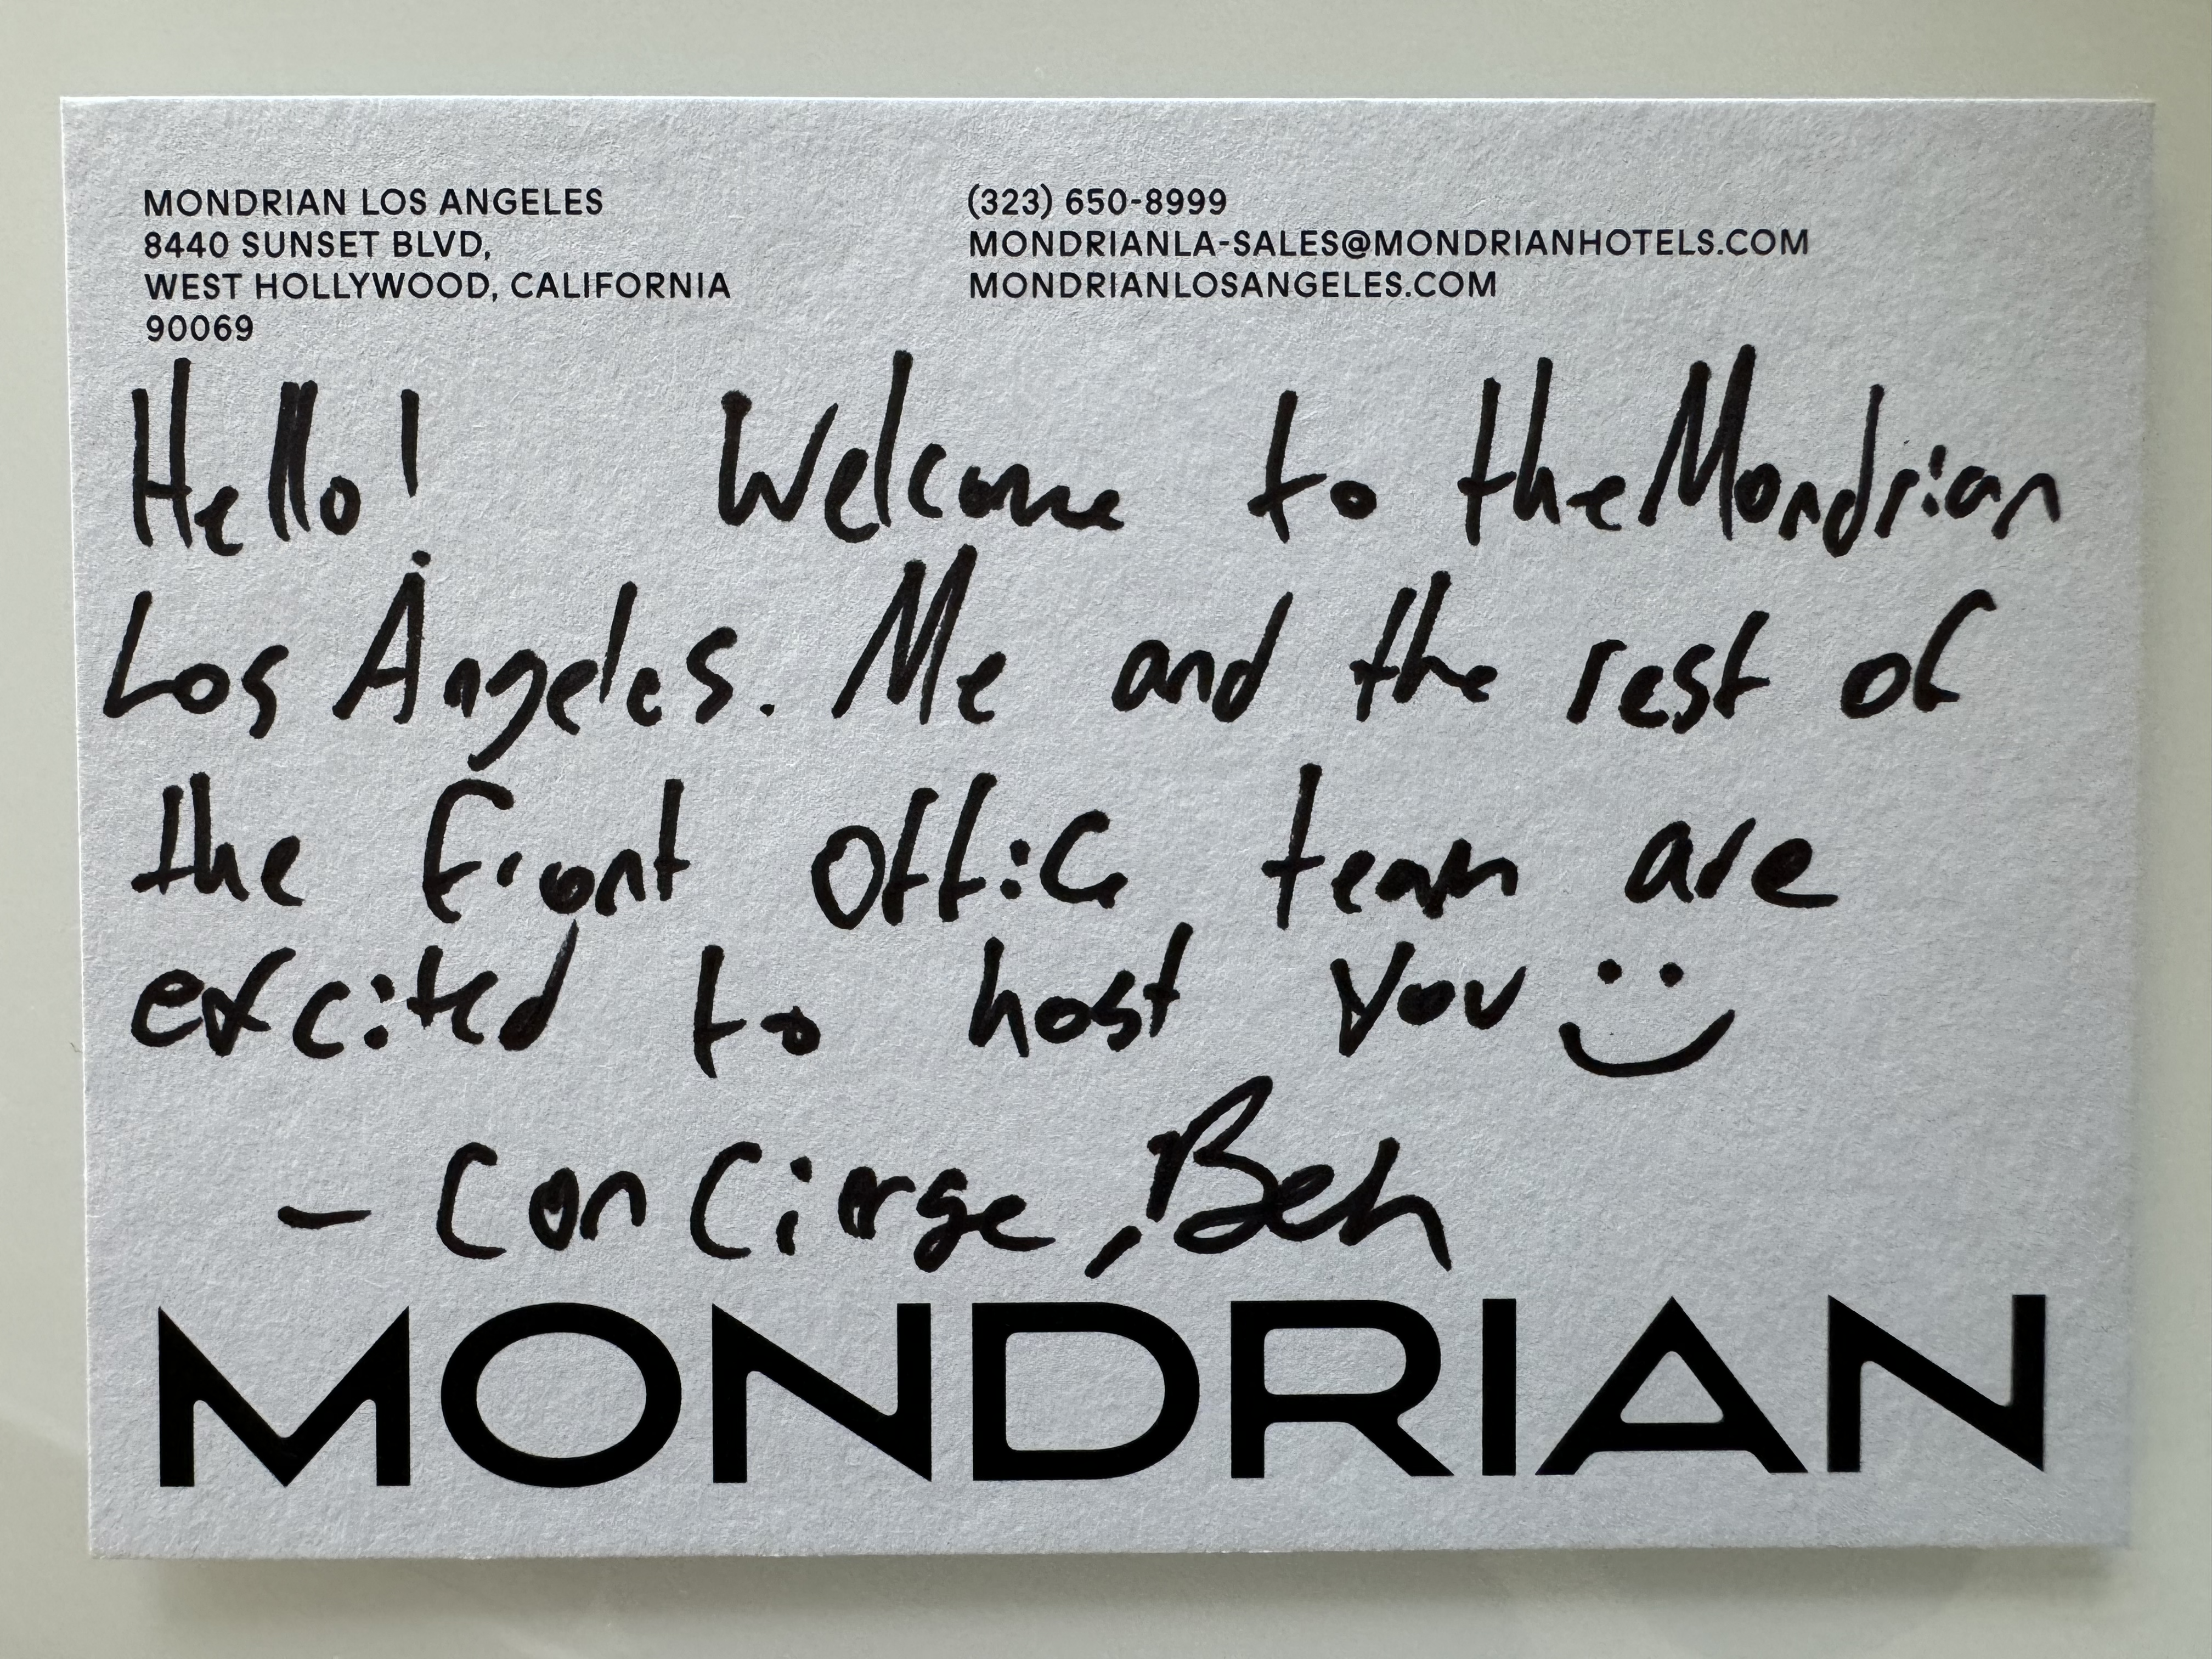 MONDRIAN LOS ANGELES
8440 SUNSET BLVD,
WEST HOLLYWOOD, CALIFORNIA
90069
(323) 650-8999
MONDRIANLA-SALES@MONDRIANHOTELS.COM
MONDRIANLOSANGELES.COM
Hello! Welcome to the Mondrian
Los Angeles. Me and the rest of
the front office team are
excited to host you :)
- Concierge, Ben
MONDRIAN